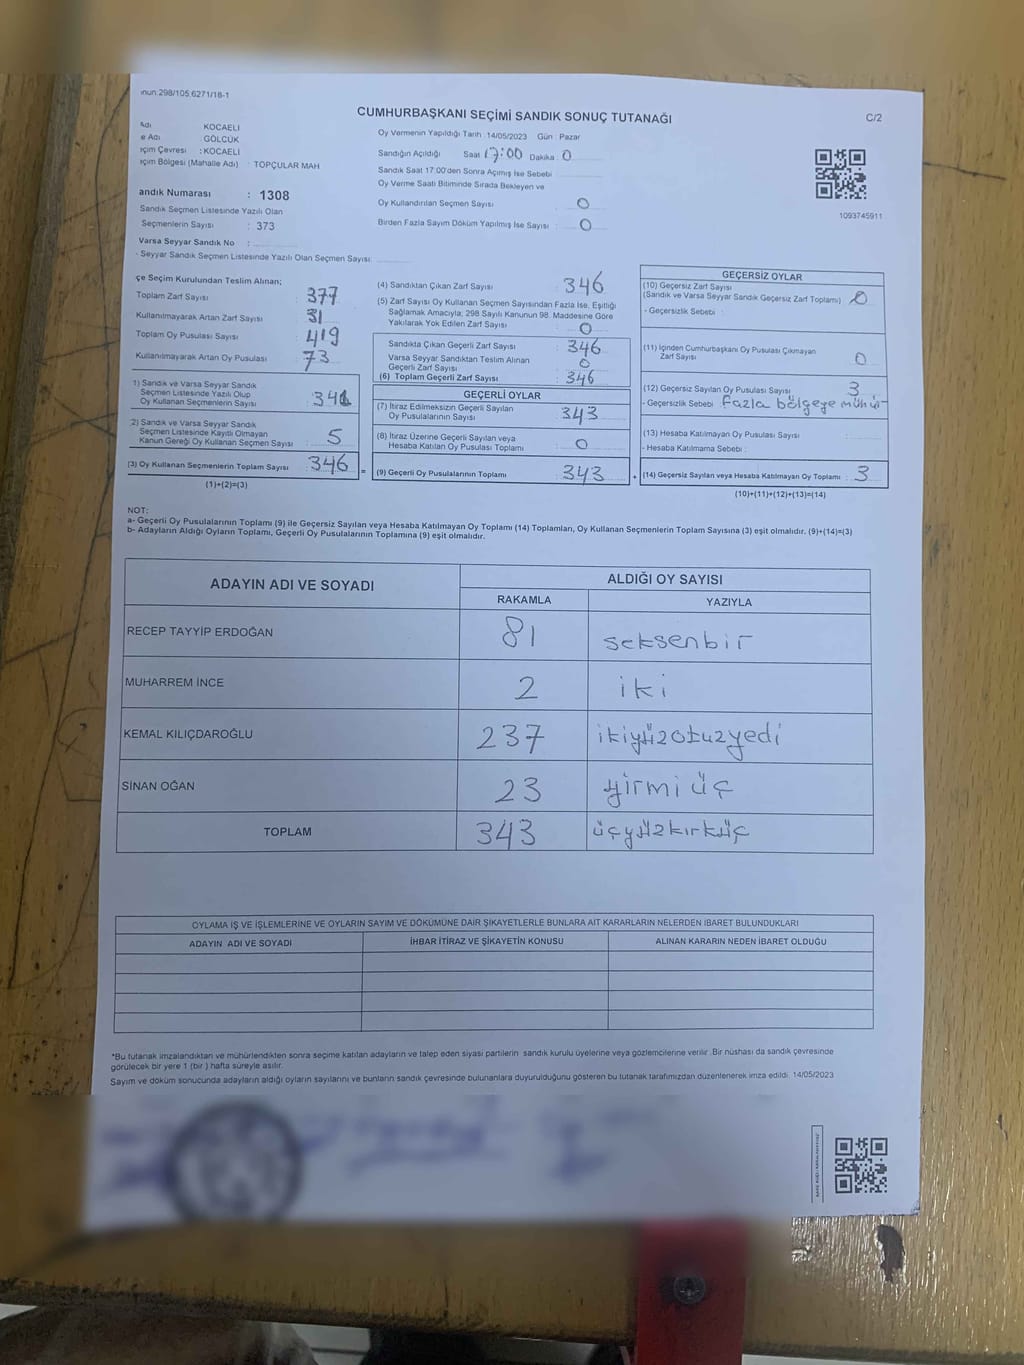 nun:298/105,6271/18-1
CUMHURBAŞKANI SEÇİMİ SANDIK SONUÇ TUTANAĞI
C/2
Adı KOCAELİ
e Adı GÖLCÜK
içim Çevresi : KOCAELİ
içim Bölgesi (Mahalle Adı) : TOPÇULAR MAH
andık Numarası : 1308
Sandık Seçmen Listesinde Yazılı Olan
Seçmenlerin Sayısı : 373
Varsa Seyyar Sandık No :
- Seyyar Sandık Seçmen Listesinde Yazılı Olan Seçmen Sayısı:
Oy Vermenin Yapıldığı Tarih :14/05/2023 Gün : Pazar
Sandığın Açıldığı Saat 17:00 Dakika : 0
Sandık Saat 17:00'den Sonra Açımış İse Sebebi
Oy Verme Saati Bitiminde Sırada Bekleyen ve
Oy Kullandırılan Seçmen Sayısı : 0
Birden Fazla Sayım Döküm Yapılmış İse Sayısı : 0
1093745911
çe Seçim Kurulundan Teslim Alınan;
Toplam Zarf Sayısı : 377
Kullanılmayarak Artan Zarf Sayısı : 31
Toplam Oy Pusulası Sayısı : 419
Kullanılmayarak Artan Oy Pusulası : 73
1) Sandık ve Varsa Seyyar Sandık
Seçmen Listesinde Yazılı Olup
Oy Kullanan Seçmenlerin Sayısı : 341
2) Sandık ve Varsa Seyyar Sandık
Seçmen Listesinde Kayıtlı Olmayan
Kanun Gereği Oy Kullanan Seçmen Sayısı : 5
(3) Oy Kullanan Seçmenlerin Toplam Sayısı : 346 =
(1)+(2)=(3)
(4) Sandıktan Çıkan Zarf Sayısı : 346
(5) Zarf Sayısı Oy Kullanan Seçmen Sayısından Fazla İse, Eşitliği
Sağlamak Amacıyla, 298 Sayılı Kanunun 98. Maddesine Göre
Yakılarak Yok Edilen Zarf Sayısı : 0
Sandıkta Çıkan Geçerli Zarf Sayısı : 346
Varsa Seyyar Sandıktan Teslim Alınan
Geçerli Zarf Sayısı : 0
(6) Toplam Geçerli Zarf Sayısı : 346
GEÇERLİ OYLAR
(7) İtiraz Edilmeksizin Geçerli Sayılan
Oy Pusulalarının Sayısı : 343
(8) İtiraz Üzerine Geçerli Sayılan veya
Hesaba Katılan Oy Pusulası Toplamı : 0
(9) Geçerli Oy Pusulalarının Toplamı : 343 +
GEÇERSİZ OYLAR
(10) Geçersiz Zarf Sayısı
(Sandık ve Varsa Seyyar Sandık Geçersiz Zarf Toplamı) : 0
- Geçersizlik Sebebi :
(11) İçinden Cumhurbaşkanı Oy Pusulası Çıkmayan
Zarf Sayısı : 0
(12) Geçersiz Sayılan Oy Pusulası Sayısı : 3
- Geçersizlik Sebebi : Fazla bölgeye mühür
(13) Hesaba Katılmayan Oy Pusulası Sayısı :
- Hesaba Katılmama Sebebi :
(14) Geçersiz Sayılan veya Hesaba Katılmayan Oy Toplamı : 3
(10)+(11)+(12)+(13)=(14)
NOT:
a- Geçerli Oy Pusulalarının Toplamı (9) ile Geçersiz Sayılan veya Hesaba Katılmayan Oy Toplamı (14) Toplamları, Oy Kullanan Seçmenlerin Toplam Sayısına (3) eşit olmalıdır. (9)+(14)=(3)
b- Adayların Aldığı Oyların Toplamı, Geçerli Oy Pusulalarının Toplamına (9) eşit olmalıdır.
ADAYIN ADI VE SOYADI
ALDIĞI OY SAYISI
RAKAMLA YAZIYLA
RECEP TAYYİP ERDOĞAN 81 seksenbir
MUHARREM İNCE 2 iki
KEMAL KILIÇDAROĞLU 237 ikiyüzotuzyedi
SİNAN OĞAN 23 yirmi üç
TOPLAM 343 üçyüzkırküç
OYLAMA İŞ VE İŞLEMLERİNE VE OYLARIN SAYIM VE DÖKÜMÜNE DAİR ŞİKAYETLERLE BUNLARA AİT KARARLARIN NELERDEN İBARET BULUNDUKLARI
ADAYIN ADI VE SOYADI İHBAR İTİRAZ VE ŞİKAYETİN KONUSU ALINAN KARARIN NEDEN İBARET OLDUĞU
*Bu tutanak imzalandıktan ve mühürlendikten sonra seçime katılan adayların ve talep eden siyasi partilerin sandık kurulu üyelerine veya gözlemcilerine verilir .Bir nüshası da sandık çevresinde
görülecek bir yere 1 (bir ) hafta süreyle asılır.
Sayım ve döküm sonucunda adayların aldığı oyların sayılarını ve bunların sandık çevresinde bulunanlara duyurulduğunu gösteren bu tutanak tarafımızdan düzenlenerek imza edildi. 14/05/2023